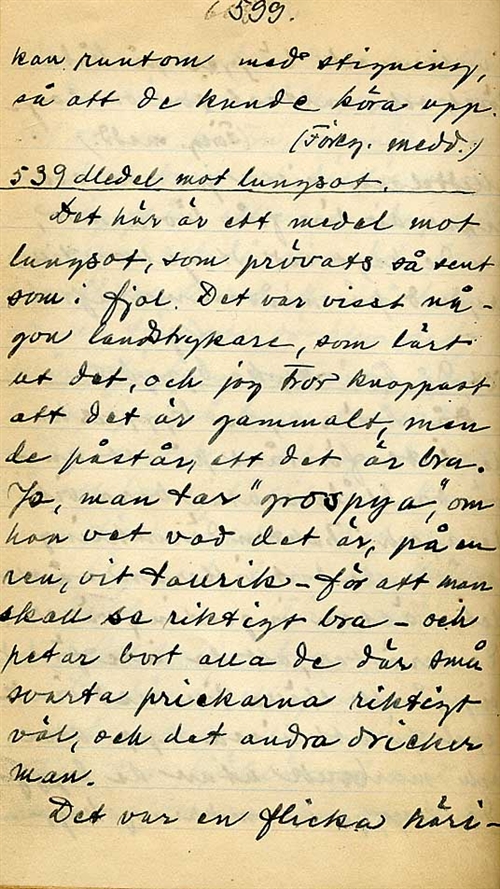 599.
kan runtom med stigning,
så att de kunde köra upp.
(Föreg. medd.)
539 Medel mot lungsot.
Det här är ett medel mot
lungsot, som prövats så sent
som i fjol. Det var visst nå-
gon landstrykare, som lärt
ut det, och jag tror knappast
att det är gammalt, men
de påstår, att det är bra.
Jo, man tar "grospya", om
han vet vad det är, på en
ren, vit tallrik - för att man
skall se riktigt bra - och
petar bort alla de där små
svarta prickarna riktigt
väl, och det andra dricker
man.
Det var en flicka häri-